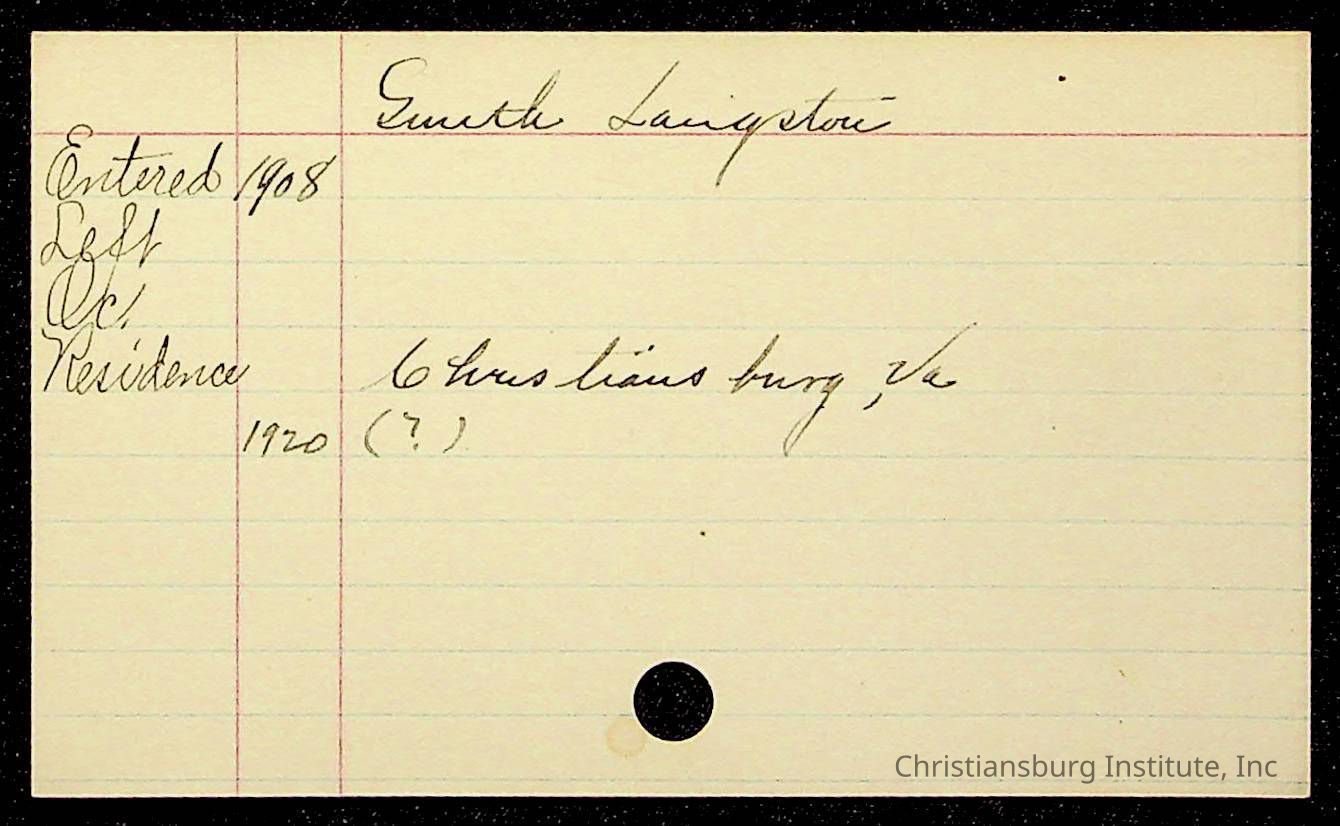 Smith Langston
Entered 1908
Left
Oc.
Residence Christiansburg, Va
1920 (?)
Christiansburg Institute, Inc